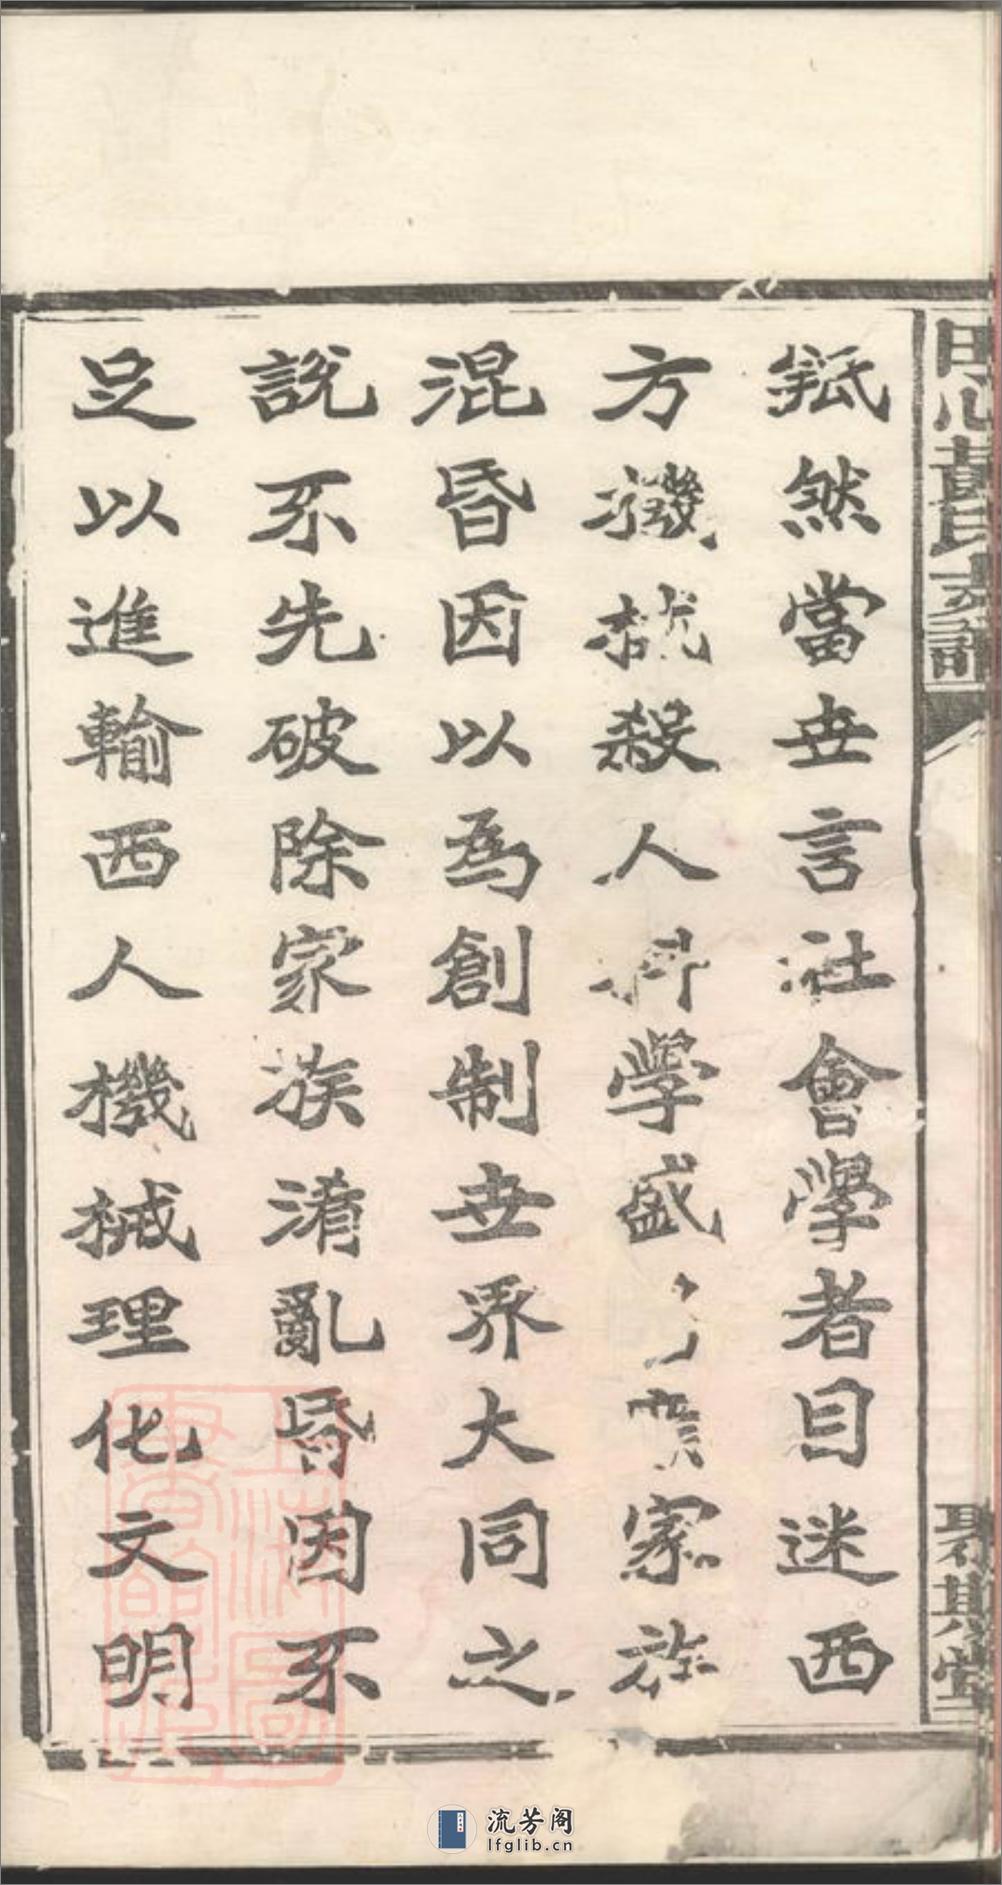 然當世言社會學者目迷西
方機械殺人科學盛家族
混昏因以為創制世界大同之
說不先破除家族淆亂昏因不
足以進輸西人機械理化文明
黃氏支譜
聚斯堂
上海圖書館藏
流芳阁
lfglib.cn